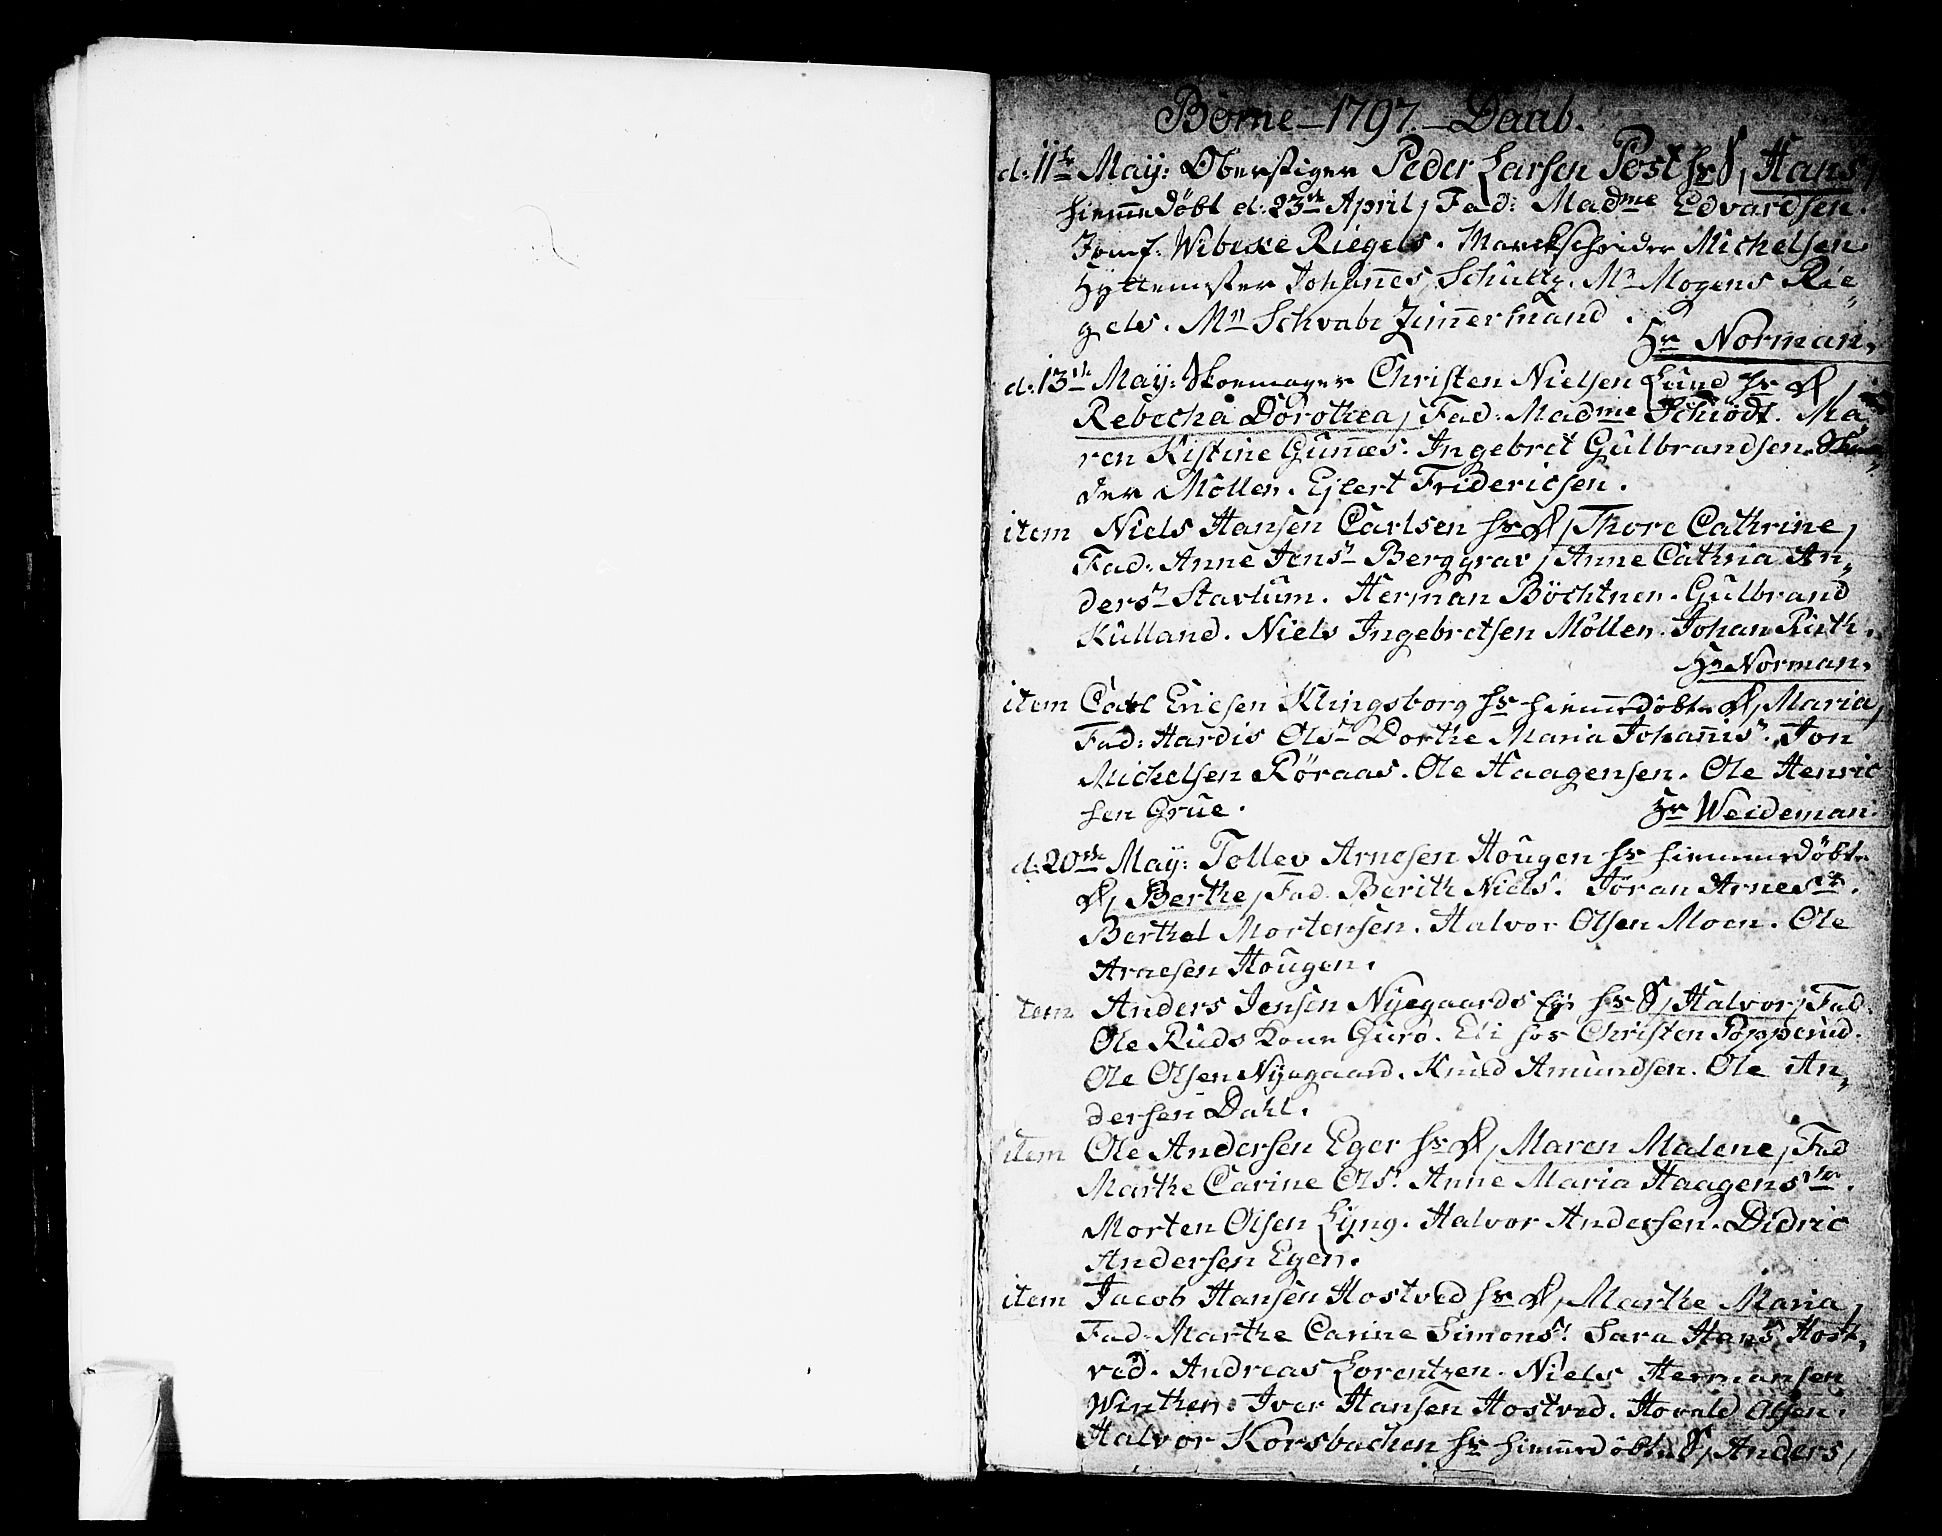 Börne – 1797. – Daab.
d: 11te May: Oberstiger Peder Larsen Post hs S, Hans,
hiemmedöbt d: 23de April, Fad: Madme Edvardsen.
Jomf: Wibeke Riegels. Markscheider Michelsen
Hyttemester Johannes Schultz. Mr Mogens Rie„
gels. Mr Schvabe Zimmermand.
Hr Norman.
d: 13de May: Skoemager Christen Nielsen Lund hs D,
Rebecha Dorothea, Fad: Madme Schiödt. Ma„
ren Kistine Gunnes. Ingebret Gulbrandsen.
der Möllen. Ejlert Fridericsen.
item Niels Hansen Carlsen hs D, Thore Cathrine,
Fad: Anne Jensr Berggrav, Anne Cathria An„
dersr Stavlum. Herman Böchtner. Gulbrand
Kulland. Niels Ingebretsen Möllen. Johan Rieth.
Hr Norman.
item Carl Ericsen Klingsborg hs hiemmedöbte D, Maria,
Fad: Hardis Olsr Dorthe Maria Johannisr. Jon
Michelsen Röraas. Ole Haagensen. Ole Henric
sen Grue.
Hr Weideman.
d: 20de May: Tollev Arnesen Hougen hs hiemmedöbte
D, Berthe, Fad. Berith Niels. Jöran Arnesdr.
Berthel Mortensen. Halvor Olsen Moen. Ole
Arnesen Hougen.
item Anders Jensen Nyegaards Ejr hs S, Halvor, Fad:
Ole Ruds Kone Guro. Eli hos Christen Popperud.
Ole Olsen Nyegaard. Knud Amundsen. Ole An„
dersen Dahl.
item Ole Andersen Eger hs D, Maren Malene, Fad
Marthe Carine Olsr. Anne Maria Haagensdr.
Morten Olsen Lyng. Halvor Andersen. Didric
Andersen Eger.
item Jacob Hansen Hostved hs D, Marthe Maria,
Fad: Marthe Carine Simonsr. Sara Hansr Host„
ved. Andreas Lorentzen. Niels Hermansen
Winther. Iver Hansen Hostved. Hovald Olsen.
Halvor Korsbachen hs hiemmedöbte S, Anders,